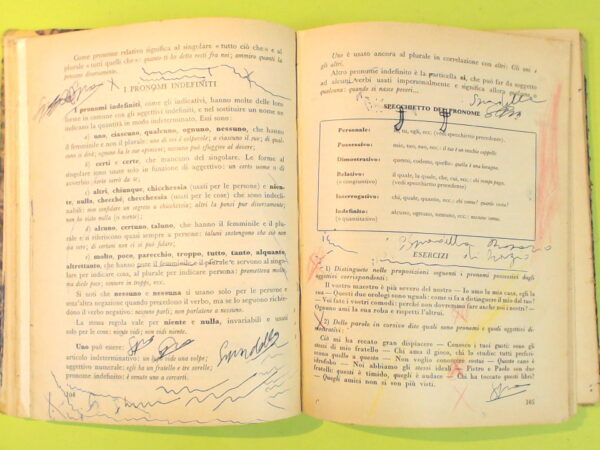 Come pronome relativo significa al singolare « tutto ciò che » e al
plurale « tutti quelli che »: quanto ti ho detto resti fra noi; ammiro quanti la
pensano diversamente.
I PRONOMI INDEFINITI
I pronomi indefiniti, come gli indicativi, hanno molte delle loro
forme in comune con gli aggettivi indefiniti, e nel sostituire un nome ne
indicano la quantità in modo indeterminato. Essi sono:
a) uno, ciascuno, qualcuno, ognuno, nessuno, che hanno
il femminile e non il plurale: uno di voi è colpevole; a ciascuno il suo; di
sono si dirà; ognuno ha le sue opinioni; nessuno può sfuggire al dovere;
b) certi e certe, che mancano del singolare. Le forme al
singolare sono usate solo in funzione di aggettivo: un certo uomo
avrebbe
c) altri, chiunque, chicchessia (usati per le persone) e nien-
te, nulla, checché, checchessia (usati per le cose) che sono indecli-
nabili: non confidare un segreto a chicchessia; altri la pensi pur diversamente;
non ho visto nulla (o niente);
d) alcuno, certuno, taluno, che hanno il femminile e il plura-
le e si riferiscono quasi sempre a persone: taluni sostengono che sia
di certuni non ci si può fidare;
e) molto, poco, parecchio, troppo, tutto, tanto, alquanto,
altrettanto, che hanno pure il femminile e il plurale e servono al singo-
lare per indicare cosa, al plurale per indicare persona: prometteva molto
ma diede poco; tornare in troppi, ecc.
Si noti che nessuno e nessuna si usano solo per le persone e
senz'altra negazione quando precedono il verbo, ma se lo seguono richie-
dono il verbo negativo: nessuno parli; non parlatene a nessuno.
La stessa regola vale per niente e nulla, invariabili e usati
solo per le cose: niente vidi; non vidi niente.
Uno può essere:
articolo indeterminativo: un lupo vide una volpe;
aggettivo numerale: egli ha un fratello e tre sorelle;
pronome indefinito: è venuto uno a cercarti.
104
Uno è usato ancora al plurale in correlazione con altri: Gli uni e
gli altri.
Altro pronome indefinito è la particella si, che può far da soggetto
ad alcuni verbi usati impersonalmente e significa allora qualcuno o
qualcuna: quando si nasce poveri...
SPECCHIETTO DEL PRONOME
Personale: io, tu, egli, ecc. (vedi specchietto precedente).
Possessivo: mio, tuo, suo, ecc.: il tuo è un rischio
Dimostrativo: questo, codesto, quello: quella è una lavagna.
Relativo: il quale, la quale, che, cui, ecc.: chi rompe paga.
(o congiuntivo) (vedi specchietto precedente)
Interrogativo: chi, quale, quanto, ecc.: chi suona? quale costa?
Indefinito: alcuno, ognuno, nessuno, ecc.: nessuno venne.
(o quantitativo)
ESERCIZI
1) Distinguete nelle proposizioni seguenti i pronomi possessivi dagli
aggettivi corrispondenti:
Il vostro maestro è più severo del nostro — Io amo la mia casa, egli la
sua — Questi due orologi sono uguali: come si fa a distinguere il mio dal tuo?
— Voi fate i vostri comodi: perché non dovremmo fare anche noi i nostri? —
Ognuno ami la sua roba e rispetti l'altrui.
2) Delle parole in corsivo dite quali sono pronomi e quali aggettivi di-
mostrativi:
Ciò mi ha recato gran dispiacere — Conosco i tuoi gusti: sono gli
stessi di mio fratello — Chi ama il gioco, chi lo studio: tutti preferi-
scono quello a questo — Non voglio consigli — Queste cose è
— Noi abbiamo gli stessi ideali — Pietro e Paolo son due
fratelli: questi è timido, quegli è audace — Chi ha toccato questi libri?
— Quegli amici non si son più visti.
105